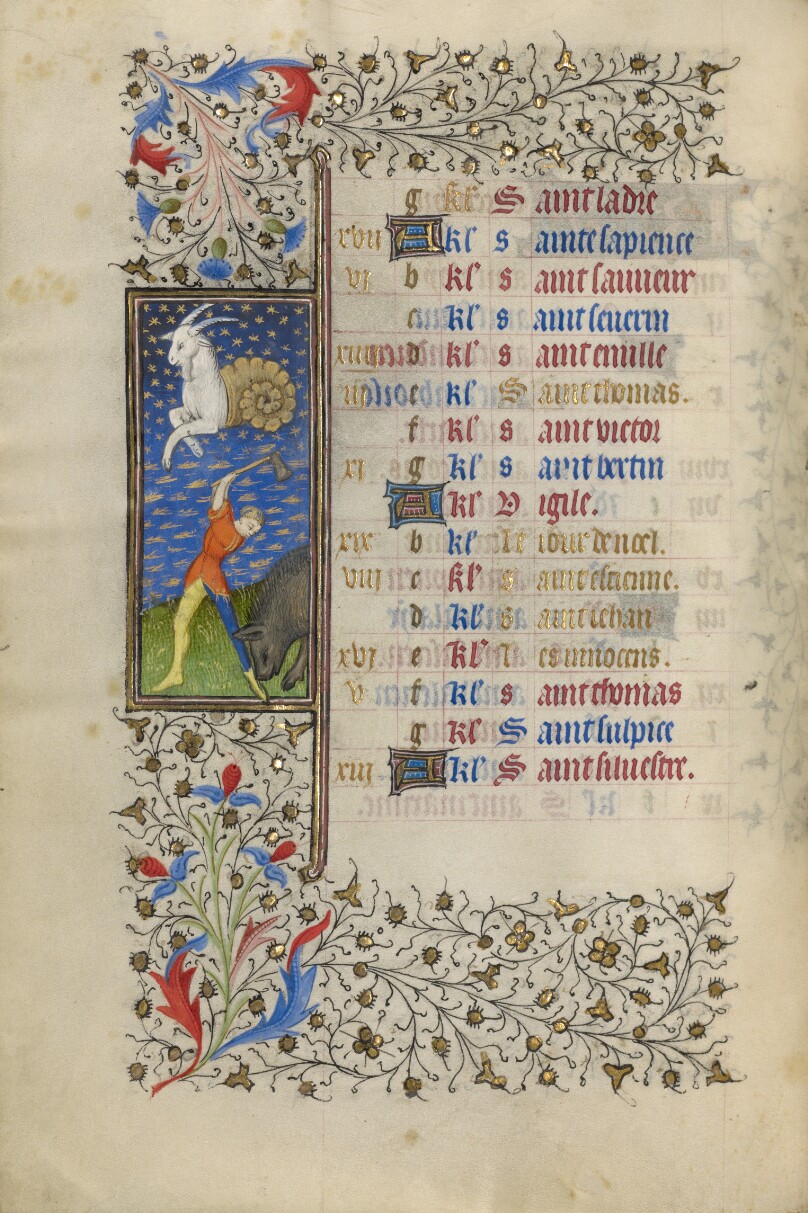 g kl' Saint ladre
xvii A kl' sainte sapience
vi b kl' saint sauueur
c kl' saint seuerin
d kl' saint emille
e kl' Saint thomas.
f kl' saint victor
xi g kl' saint bertin
A kl' Vigile.
xix b kl' Le iour de noel.
viii c kl' saint estienne.
d kl' saint iehan
xvi e kl' Les innocens.
v f kl' saint thomas
g kl' Saint sulpice
xiii A kl' Saint siluestre.